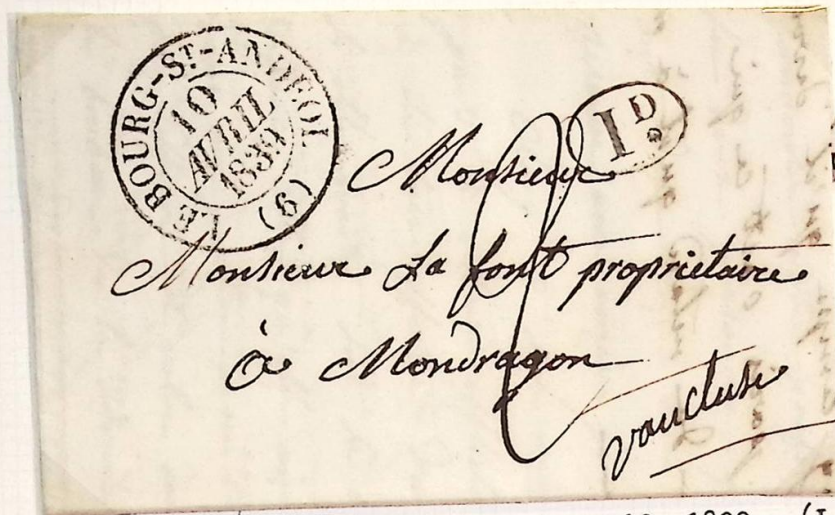 LE BOURG-ST-ANDEOL (6)
10
AVRIL
1839
1D.
Monsieur
Monsieur La font proprietaire
à Mondragon
vaucluse